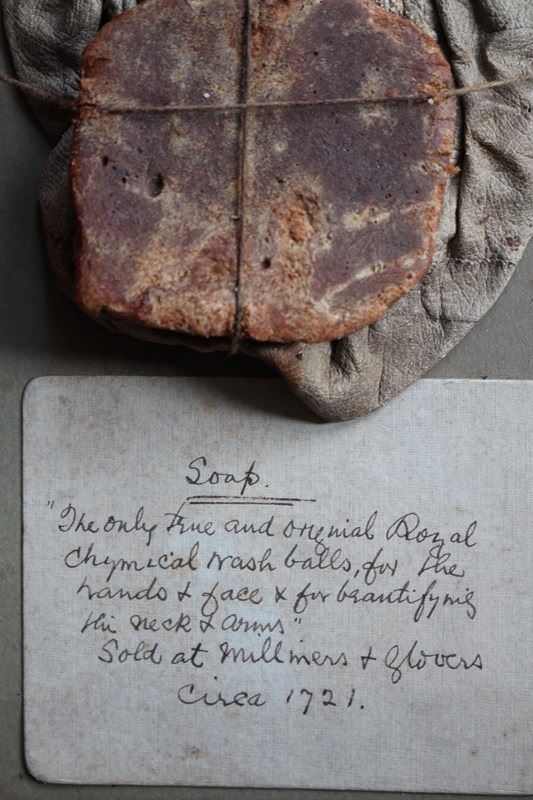 Soap.
"The only true and original Royal
Chymical wash balls, for the
hands & face & for beautifying
the neck & arms"
Sold at Milliners & Glovers
Circa 1721.